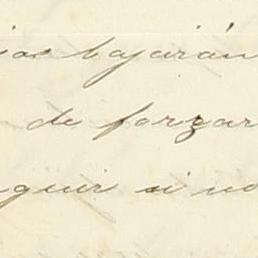 ias bajarán
de forzar
guir si no